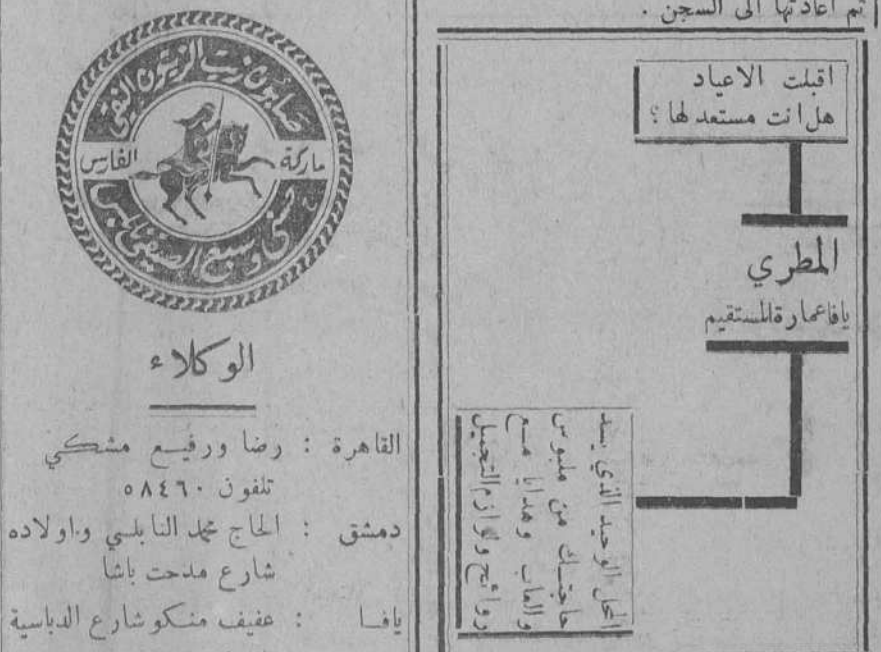 ثم اعادتها الى السجن .
اقبلت الاعياد
هل انت مستعد لها ؟
المطري
يافا عمارة المستقيم
المحل الوحيد الذي يسد
حاجتك من ملبوس
والعاب وهدايا مع
روائح ولوازم التجميل
صابون زيت الزيتون النقي
ماركة الفارس
حسني وسميح الصيفي نابلس
الوكلاء
القاهرة : رضا ورفيع مشكي
تلفون ٥٨٤٦٠
دمشق : الحاج محمد النابلسي واولاده
شارع مدحت باشا
يافا : عفيف منكو شارع الدباسية